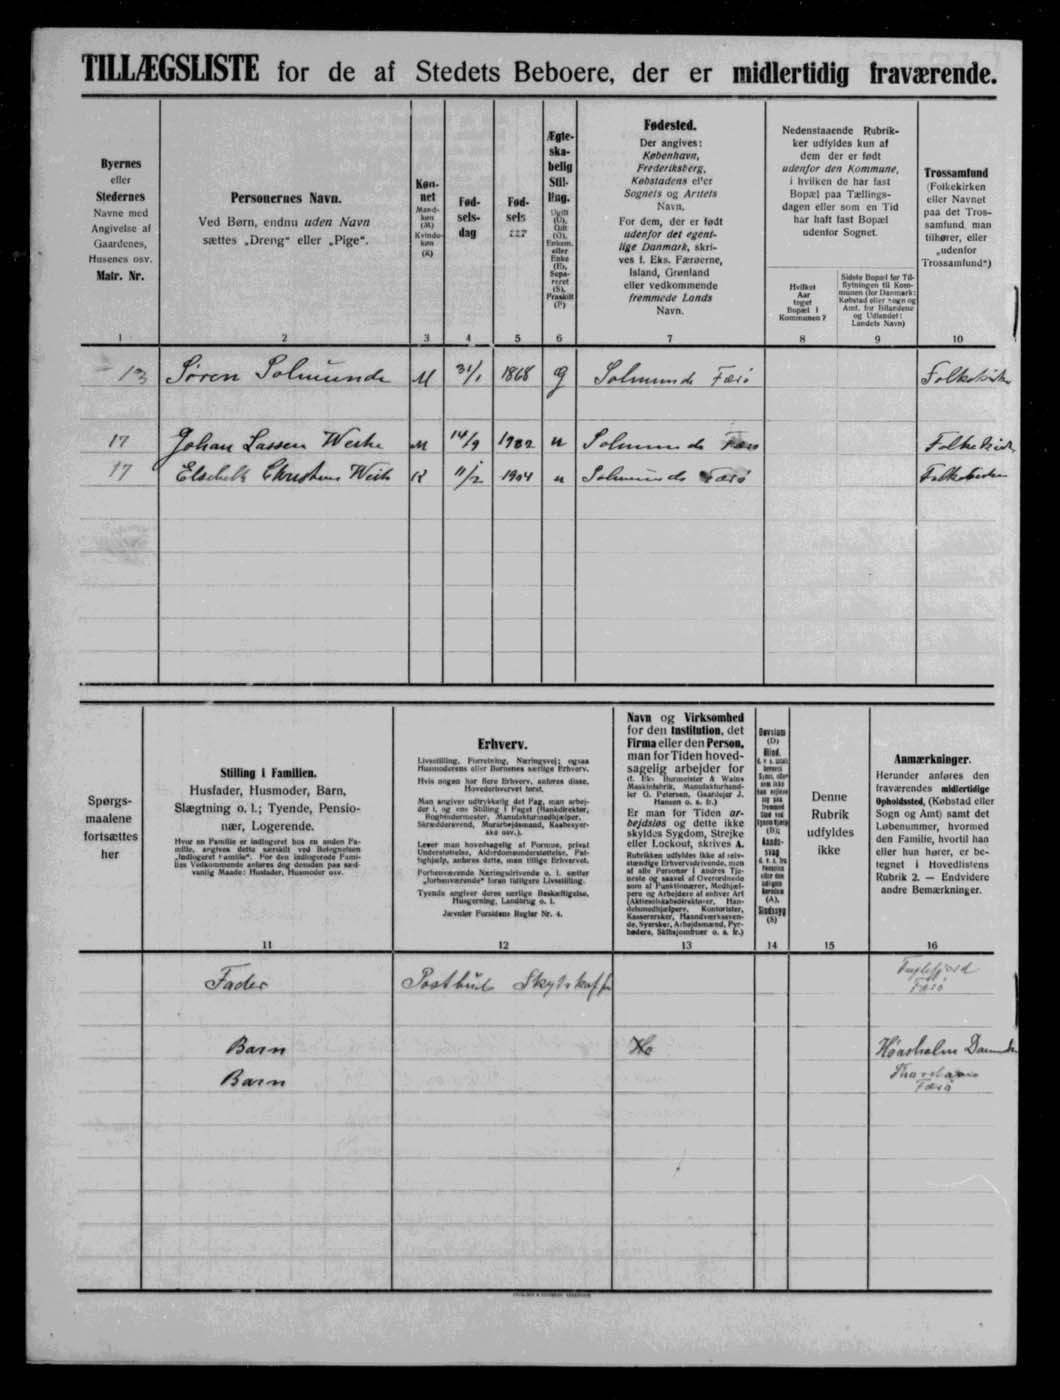 TILLÆGSLISTE for de af Stedets Beboere, der er midlertidig fraværende.
Byernes
eller
Stedernes
Navne med
Angivelse af
Gaardenes,
Husenes osv.
Matr. Nr.
Personernes Navn.
Ved Børn, endnu uden Navn
sættes „Dreng“ eller „Pige“.
Køn-
net
Mand-
køn
(M)
Kvinde-
køn
(K)
Fød-
sels-
dag
Fød-
sels
Ægte-
ska-
belig
Stil-
ling.
Ugift
(U),
Gift
(G),
Enkem.
eller
Enke
(E),
Sepa-
reret
(S),
Fraskilt
(F)
Fødested.
Der angives:
København,
Frederiksberg,
Købstadens eller
Sognets og Amtets
Navn.
For dem, der er født
udenfor det egent-
lige Danmark, skri-
ves f. Eks. Færøerne,
Island, Grønland
eller vedkommende
fremmede Lands
Navn.
Nedenstaaende Rubrik-
ker udfyldes kun af
dem der er født
udenfor den Kommune,
i hvilken de har fast
Bopæl paa Tællings-
dagen eller som en Tid
har haft fast Bopæl
udenfor Sognet.
Hvilket
Aar
taget
Bopæl i
Kommunen?
Sidste Bopæl før Til-
flytningen til Kom-
munen (for Danmark:
Købstad eller Sogn og
Amt, for Bilandene
og Udlandet:
Landets Navn)
Trossamfund
(Folkekirken
eller Navnet
paa det Tros-
samfund, man
tilhører, eller
„udenfor
Trossamfund“)
1 2 3 4 5 6 7 8 9 10
13 Søren Solmunde M 31/1 1868 G Solmunde Færø
17 Johan Lassen M 14/9 u Solmunde Færø
17 K 11/2 1904 u Solmunde Færø
Spørgs-
maalene
fortsættes
her
Stilling i Familien.
Husfader, Husmoder, Barn,
Slægtning o. l.; Tyende, Pensio-
nær, Logerende.
Hvor en Familie er indlogeret hos en anden Fa-
milie, angives dette særskilt ved Betegnelsen
„Indlogeret Familie“. For den indlogerede Fami-
lies Vedkommende anføres deg desuden paa sæd-
vanlig Maade: Husfader, Husmoder osv.
Erhverv.
Livsstilling, Forretning, Næringsvej; ogsaa
Husmoderens eller Børnenes særlige Erhverv.
Hvis nogen har flere Erhverv, anføres disse,
Hovederhvervet først.
Man angiver udtrykkelig det Fag, man arbej-
der i, og ens Stilling i Faget (Bankdirektør,
Bogbindermester, Manufakturmedhjælper,
Skræddersvend, Murarbejdsmand, Kaabesyer-
ske osv.).
Lever man hovedsagelig af Formue, privat
Understøttelse, Alderdomsunderstøttelse, Fat-
tighjælp, anføres dette, men tillige Erhvervet.
Forhenværende Næringsdrivende o. l. sætter
„forhenværende“ foran tidligere Livsstilling.
Tyende angiver deres særlige Beskæftigelse,
Husgerning, Landbrug o. l.
Jævnfør Forsidens Regler Nr. 4.
Navn og Virksomhed
for den Institution, det
Firma eller den Person,
man for Tiden hoved-
sagelig arbejder for
(f. Eks. Burmeister & Wains
Maskinfabrik, Manufakturhand-
ler G. Petersen, Gaardejer J.
Hansen o. s. fr.)
Er man for Tiden ar-
bejdsløs og dette ikke
skyldes Sygdom, Strejke
eller Lockout, skrives A.
Rubrikken udfyldes ikke af selv-
stændige Erhvervsdrivende, men
af alle Personer i andres Tje-
neste og saavel af Overordnede
som af Funktionærer, Medhjæl-
pere og Arbejdere af enhver Art
(Aktieselskabsdirektører, Han-
delsmedhjælpere, Kontorister,
Kasserersker, Haandværkssven-
de, Syersker, Arbejdsmænd, Fyr-
bødere, Skibsjomfruer o. s. fr.)
Døvstum
(D)
Blind,
(B);
Aands-
svag
(A),
Sindssyg
(S)
Denne
Rubrik
udfyldes
ikke
Anmærkninger.
Herunder anføres den
fraværendes midlertidige
Opholdssted, (Købstad eller
Sogn og Amt) samt det
Løbenummer, hvormed
den Familie, hvortil han
eller hun hører, er be-
tegnet i Hovedlistens
Rubrik 2. — Endvidere
andre Bemærkninger.
11 12 13 14 15 16
Fader Postbud Færø
Barn
Barn Færø